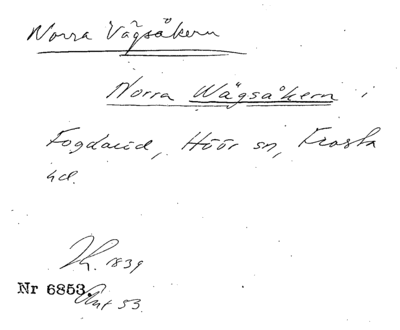 Norra Vägsåkern
Norra Wägsåkern i
Fogdarud, Höör sn, Frosta
hd.
Sk. 1839
Nr 6853.
Akt 53.